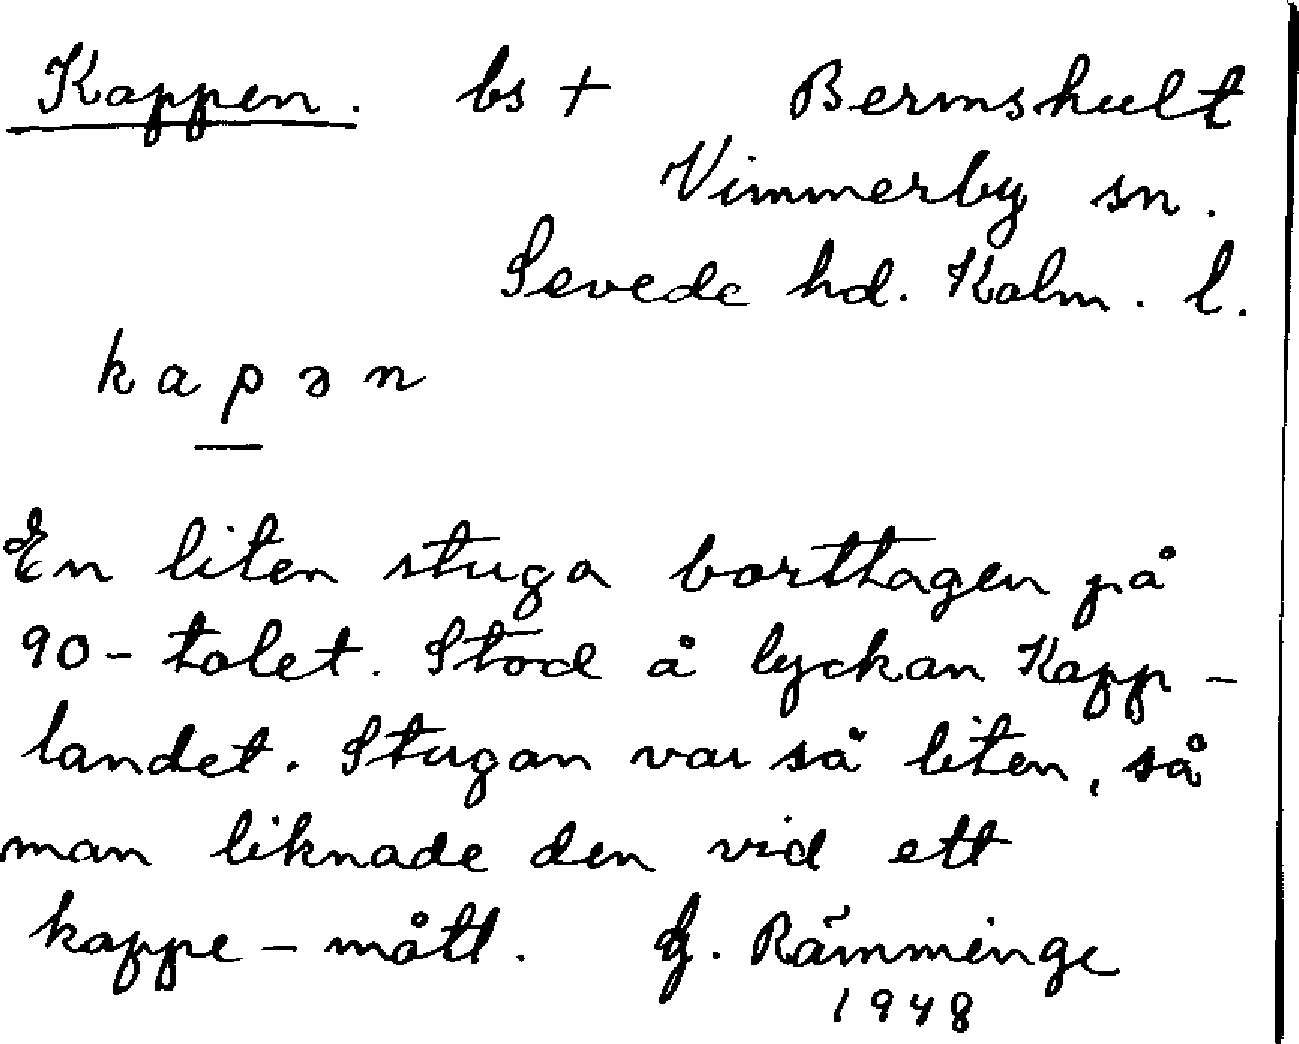 Kappen. bs + Bermshult
Vimmerby sn.
Sevede hd. Kalm. l.
k a p ə n
En liten stuga borttagen på
90-talet. Stod å lyckan Kapp-
landet. Stugan var så liten, så
man liknade den vid ett
kappe-mått. G. Rämminge
1948